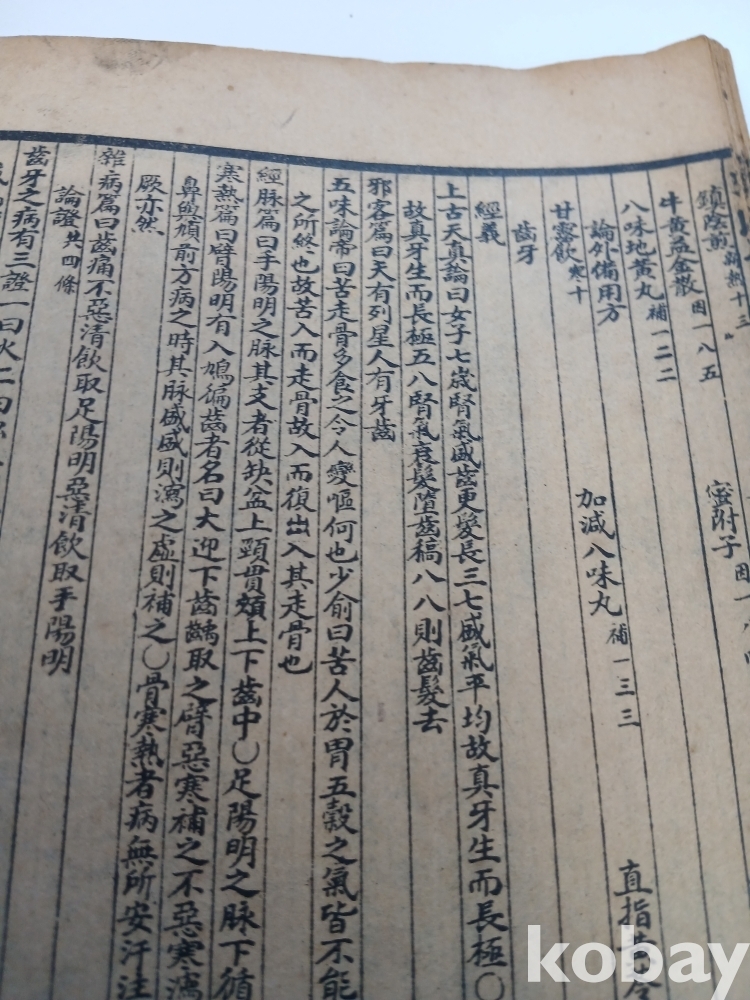 鎮陰煎 新熱十三 蜜附子
牛黃益金散 因一八五
八味地黃丸 補一二二
論外備用方 加減八味丸 補一三三 直指黃芩
甘露飲 寒十
齒牙
經義
上古天真論曰女子七歲腎氣盛齒更髮長三七盛氣平均故真牙生而長極〇
故真牙生而長極五八腎氣衰髮墮齒槁八八則齒髮去
邪客篇曰天有列星人有牙齒
五味論帝曰苦走骨多食之令人變嘔何也少俞曰苦人於胃五穀之氣皆不能
之所終也故苦入而走骨故入而復出入其走骨也
經脉篇曰手陽明之脉其支者從缺盆上頸貫頰上下齒中〇足陽明之脉下循
寒熱篇曰臂陽明有入鳩徧齒者名曰大迎下齒齲取之臂惡寒補之不惡寒瀉
鼻與頄前方病之時其脉盛盛則瀉之虛則補之〇骨寒熱者病無所安汗注
厥亦然
雜病篇曰齒痛不惡清飲取足陽明惡清飲取手陽明
論證 共四條
齒牙之病有三證一曰火二曰
kobay